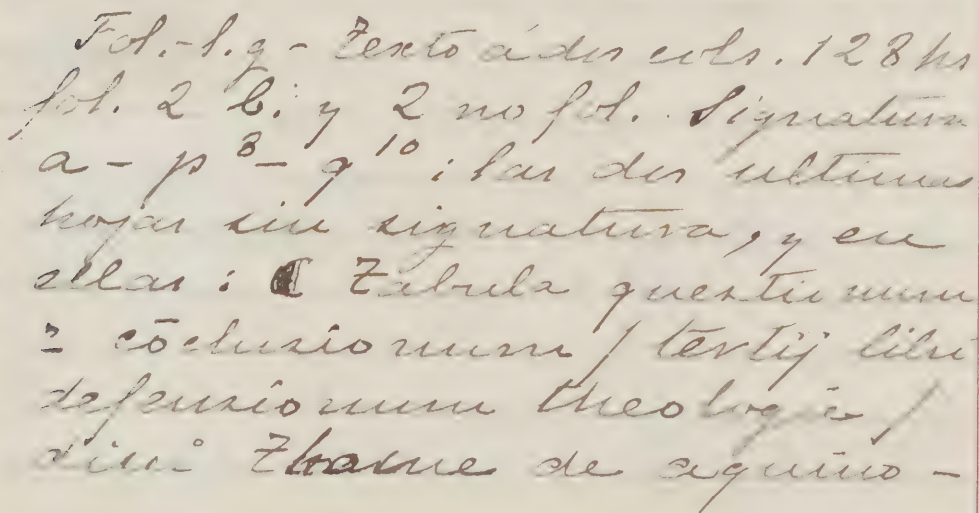 Fol.-l.g - Texto á dos cols. 128 hs
fol. 2 b. y 2 no fol. Signatura
a - p⁸ - q¹⁰ ; las dos ultimas
hojas sin signatura, y en
ellas : ☾ Tabula questionum
⁊ cōclusionum / tertij libri
defensionum theologie /
diui Thome de aquino -